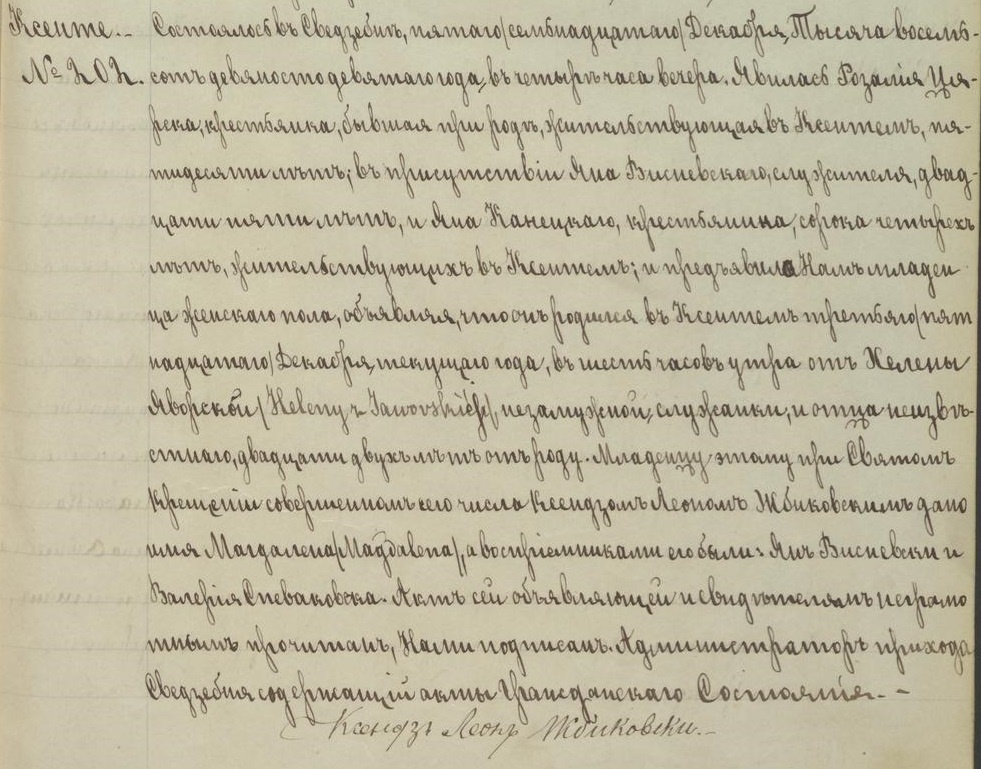 Ксенте.-
№ 202.
Состоялось въ Сведзебнѣ, пятаго /семьнадцатаго/ Декабря, Тысяча восемь-
сотъ девяносто девятаго года, въ четырѣ часа вечера. Явилась Розалія Ця-
рска, крестьянка, бывшая при родѣ, жительствующая въ Ксентемъ, пя-
тидесяти лѣтъ; въ присутствіи Яна Висневскаго, служителя, двад-
цати пяти лѣтъ, и Яна Канецкаго, крестьянина, сорока четырехъ
лѣтъ, жительствующихъ въ Ксентемъ; и предъявила Намъ младен
ца женскаго пола, объявляя, что онъ родился въ Ксентемъ третьяго /пят
надцатаго/ Декабря, текущаго года, въ шесть часовъ утра отъ Хелены
Яворской /Heleny z Jaworskich/, незамужной, служанки, и отца неизвѣ-
стнаго, двадцати двухъ лѣтъ отъ роду. Младенцу этому при Святомъ
Крещеніи совершенномъ сего числа Ксендзомъ Леономъ Жбиковскимъ дано
имя Магдалена /Magdalena/, а воспріемниками его были: Янъ Висневски и
Валерія Спеваковска. Актъ сей объявляющей и свидѣтелямъ неграмо
тнымъ прочитанъ, Нами подписанъ. Администраторъ прихода
Сведзебня содержащій акты Гражданскаго Состоянія.--
Ксендзъ Леонъ Жбиковски.-